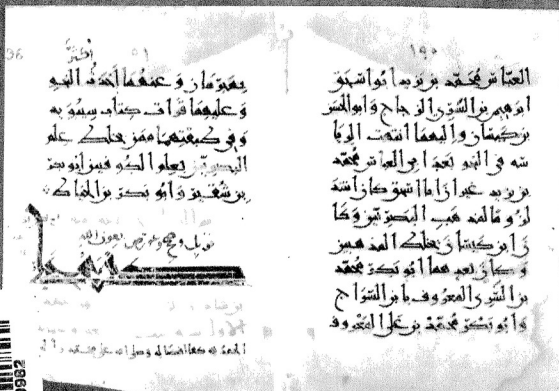 ١٩٥
العباس محمد بن يزيد ابو اسحق
ابرهيم بن السري الزجاج وابو الحسن
بن كيسان واليهما انتهت الريا
سة في النحو بعد ابي العباس محمد
بن يزيد غير ان ابا اسحق كان اشد
لزوما لمذهب البصريين وكا
ن ابن كيسان يخلط المذهبين
وكان بعدهما ابو بكر محمد
بن السري المعروف بابن السراج
وابو بكر محمد بن علي المعروف
بمبرمان وعنهما اخذت النحو
وعليهما قرات كتاب سيبويه
وفي طبقتهما ممن يخلط علم
البصريين بعلم الكوفيين ابو بكر
بن شقير وابو بكر بن الخياط
قوبل وصحح بعون الله
الحمد لله وصلى الله على
0982